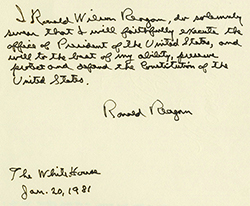 I Ronald Wilson Reagan, do solemnly
swear that I will faithfully execute the
office of President of the United States, and
will to the best of my ability, preserve
protect and defend the Constitution of the
United States.
Ronald Reagan
The White House
Jan. 20, 1981